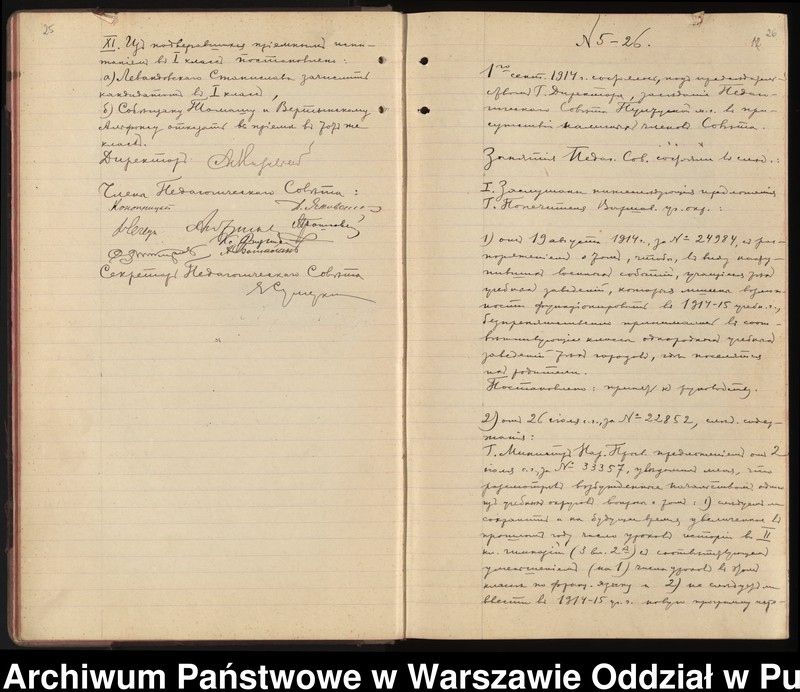 25
XI. Изъ подвергавшихся прiемнымъ испы-
танiямъ въ I классъ постановлено:
а) Левандовскаго Станислава зачислить
кандидатомъ въ I классъ,
б) Томашу и Вертынскому
Альфонсу отказать въ прiемѣ въ тотъ же
классъ.
Директоръ
Члены Педагогическаго Совѣта:
Секретарь Педагогическаго Совѣта
26
№ 5-26.
1го сент. 1914 г. состоялось, подъ предсѣдатель-
ствомъ Г. Директора, засѣданiе Педаго-
гическаго Совѣта м.г. въ при-
сутствiи наличныхъ членовъ Совѣта.
Занятiя Педаг. Сов. состояли въ слѣд.:
I. Заслушаны нижеслѣдующiя предложенiя
Г. Попечителя Варшав. уч. окр.:
1) отъ 19 августа 1914 г., за № 24984, съ рас-
поряженiемъ о томъ, чтобы, въ виду насту-
пившихъ военныхъ событiй, учащiеся тѣхъ
учебныхъ заведенiй, которыя лишены возмож-
ности функцiонировать въ 1914-15 учебн. г.,
безпрепятственно принимались въ соот-
вѣтствующiе классы однородныхъ учебныхъ
заведенiй тѣхъ городовъ, гдѣ поселятся
ихъ родители.
Постановлено: принять къ руководству.
2) отъ 26 iюля с.г., за № 22852, слѣд. содер-
жанiя:
Г. Министръ Нар. Просв. предложенiемъ отъ 2
iюля с.г., за № 33357, увѣдомилъ меня, что
разсмотрѣвъ возбужденные начальствомъ одного
изъ учебныхъ округовъ вопросы о томъ: 1) слѣдуетъ ли
сохранить и на будущее время увеличенное въ
прошломъ году число уроковъ исторiи въ II
кл. гимназiй (3 вм. 2х) съ соотвѣтствующимъ
уменьшенiемъ (на 1) числа уроковъ въ этомъ
классѣ по франц. языку и 2) не слѣдуетъ ли
ввести въ 1914-15 уч. г. новую программу
Archiwum Państwowe w Warszawie Oddział w Pu